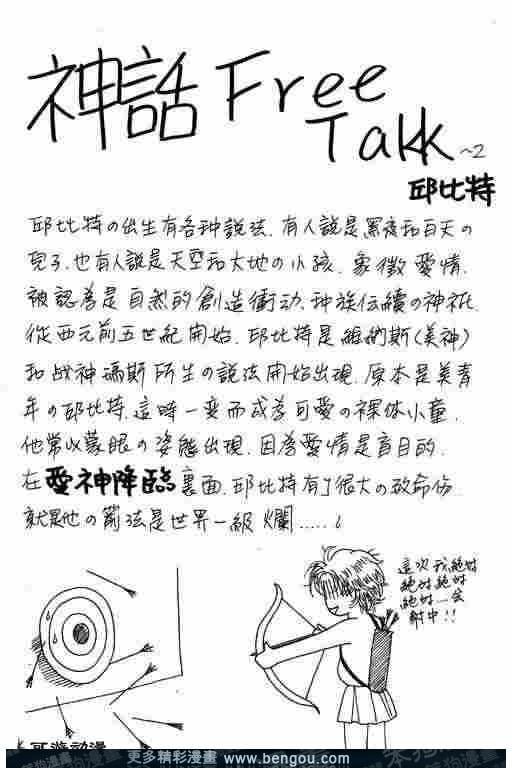 神話 Free
Talk ~2
邱比特
邱比特の出生有各种說法. 有人說是黑夜和白天の
兒子. 也有人說是天空和大地の小孩. 象徵愛情.
被認為是自然的創造衝动、种族伝續の神祇.
從西元前五世紀開始. 邱比特是維納斯(美神)
和战神瑪斯所生の說法開始出現. 原本是美青
年の邱比特. 這時一变而成為可愛の裸体小童.
他常以蒙眼の姿態出現. 因為愛情是盲目的.
在愛神降臨裏面. 邱比特有了很大の致命伤.
就是他の箭法是世界一級爛.....
這次我絕对
絕对絕对
絕对一会
射中!!
更多精彩漫畫 www.bengou.com